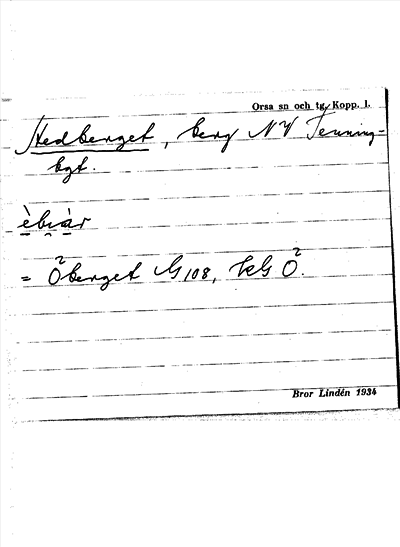 Orsa sn och tg, Kopp. l.
Hedberget, berg NV Tenning-
bgt.
= Öberget G 108, hG Ö.
Bror Lindén 1934